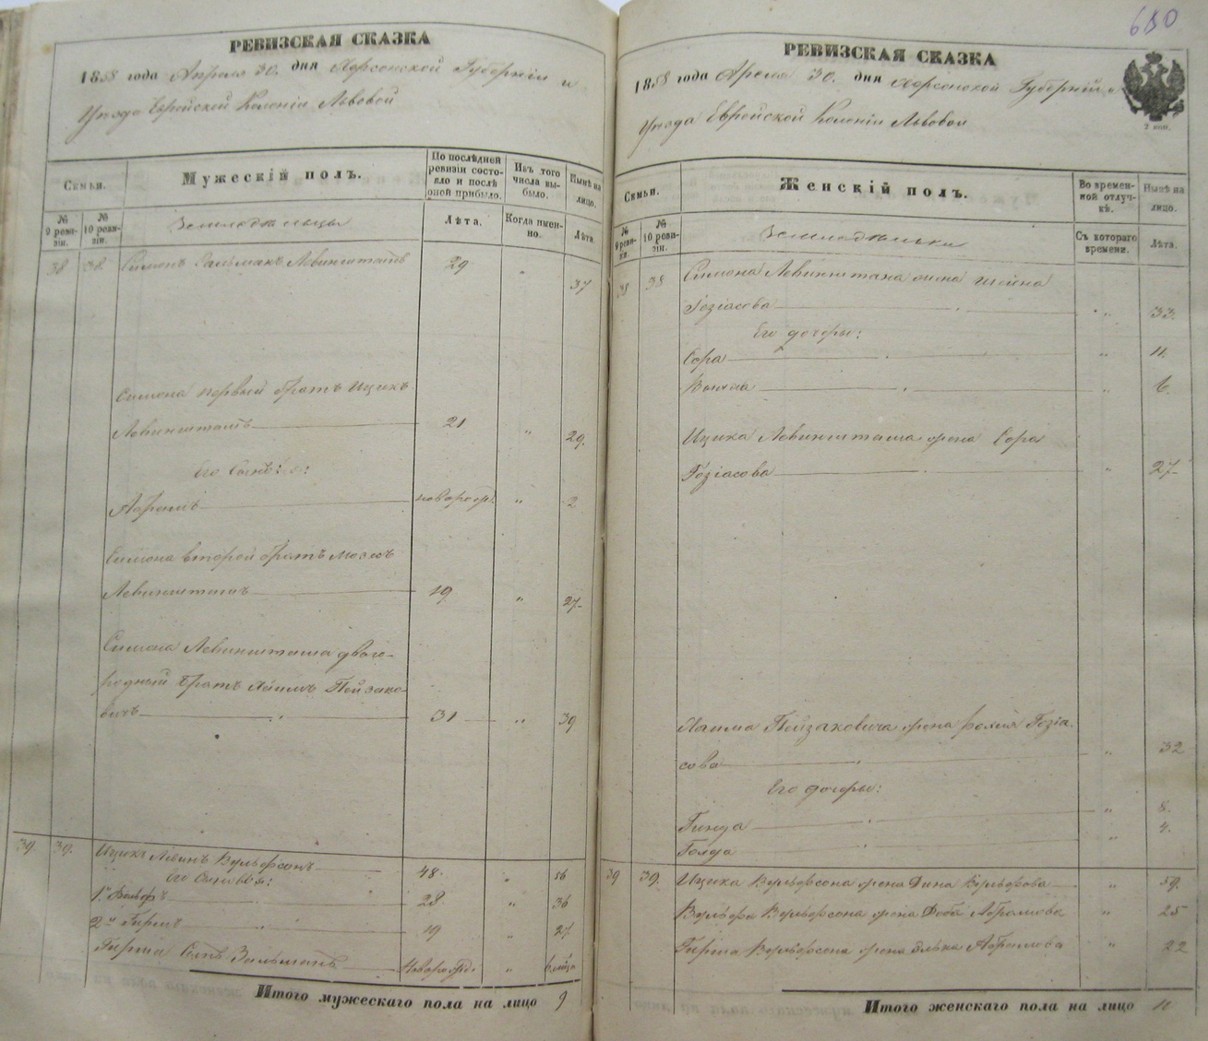 680
РЕВИЗСКАЯ СКАЗКА
1858 года Апреля 30. дня Херсонской Губерніи и
Уезда Еврейской Колоніи Львовой
Семьи.
Мужескій полъ.
По последней ревизіи состояло и послѣ оной прибыло.
Изъ того числа выбыло.
Нынѣ на лицо.
№ 9 ревизіи.
№ 10 ревизіи.
Земледѣльцы
Лѣта.
Когда именно.
Лѣта.
38 38. Симонъ Левинштамъ 29 " 37
Симона первый братъ Ицикъ
Левинштамъ 21 " 29.
Его Сынъ:
новорож. " 2
Симона второй братъ
Левинштамъ 19 " 27.
Симона Левинштама двою-
родный братъ Хаимъ
вичъ 31 " 39
39 39. Ицикъ Левинъ Вульфсонъ 48. " 56
Его Сыновья:
1й Вольфъ 28 " 36
2й Гиршъ 19 " 27
Гирша Сынъ Зельманъ Новорожд.
Итого мужескаго пола на лицо 9
РЕВИЗСКАЯ СКАЗКА
1858 года Апреля 30. дня Херсонской Губерніи и
Уезда Еврейской Колоніи Львовой
2 коп.
Семьи.
Женскій полъ.
Во временной отлучкѣ.
Нынѣ на лицо.
№ 9 ревизіи.
№ 10 ревизіи.
Земледѣльки
Съ котораго времени.
Лѣта.
38 38 Симона Левинштама жена Шейна
" 33.
Его дочеры:
Сора " 11.
" 6.
Ицика Левинштама жена Сора
" 27
Хаима жена
сова " 32
Его дочеры:
Гинда " 8.
Голда " 4.
39 39. Ицика Вульфсона жена Дина Вульфова " 59.
Вульфа Вульфсона жена Доба Абрамова " 25
Гирша Вульфсона жена Элька Абрамова " 22
Итого женскаго пола на лицо 11